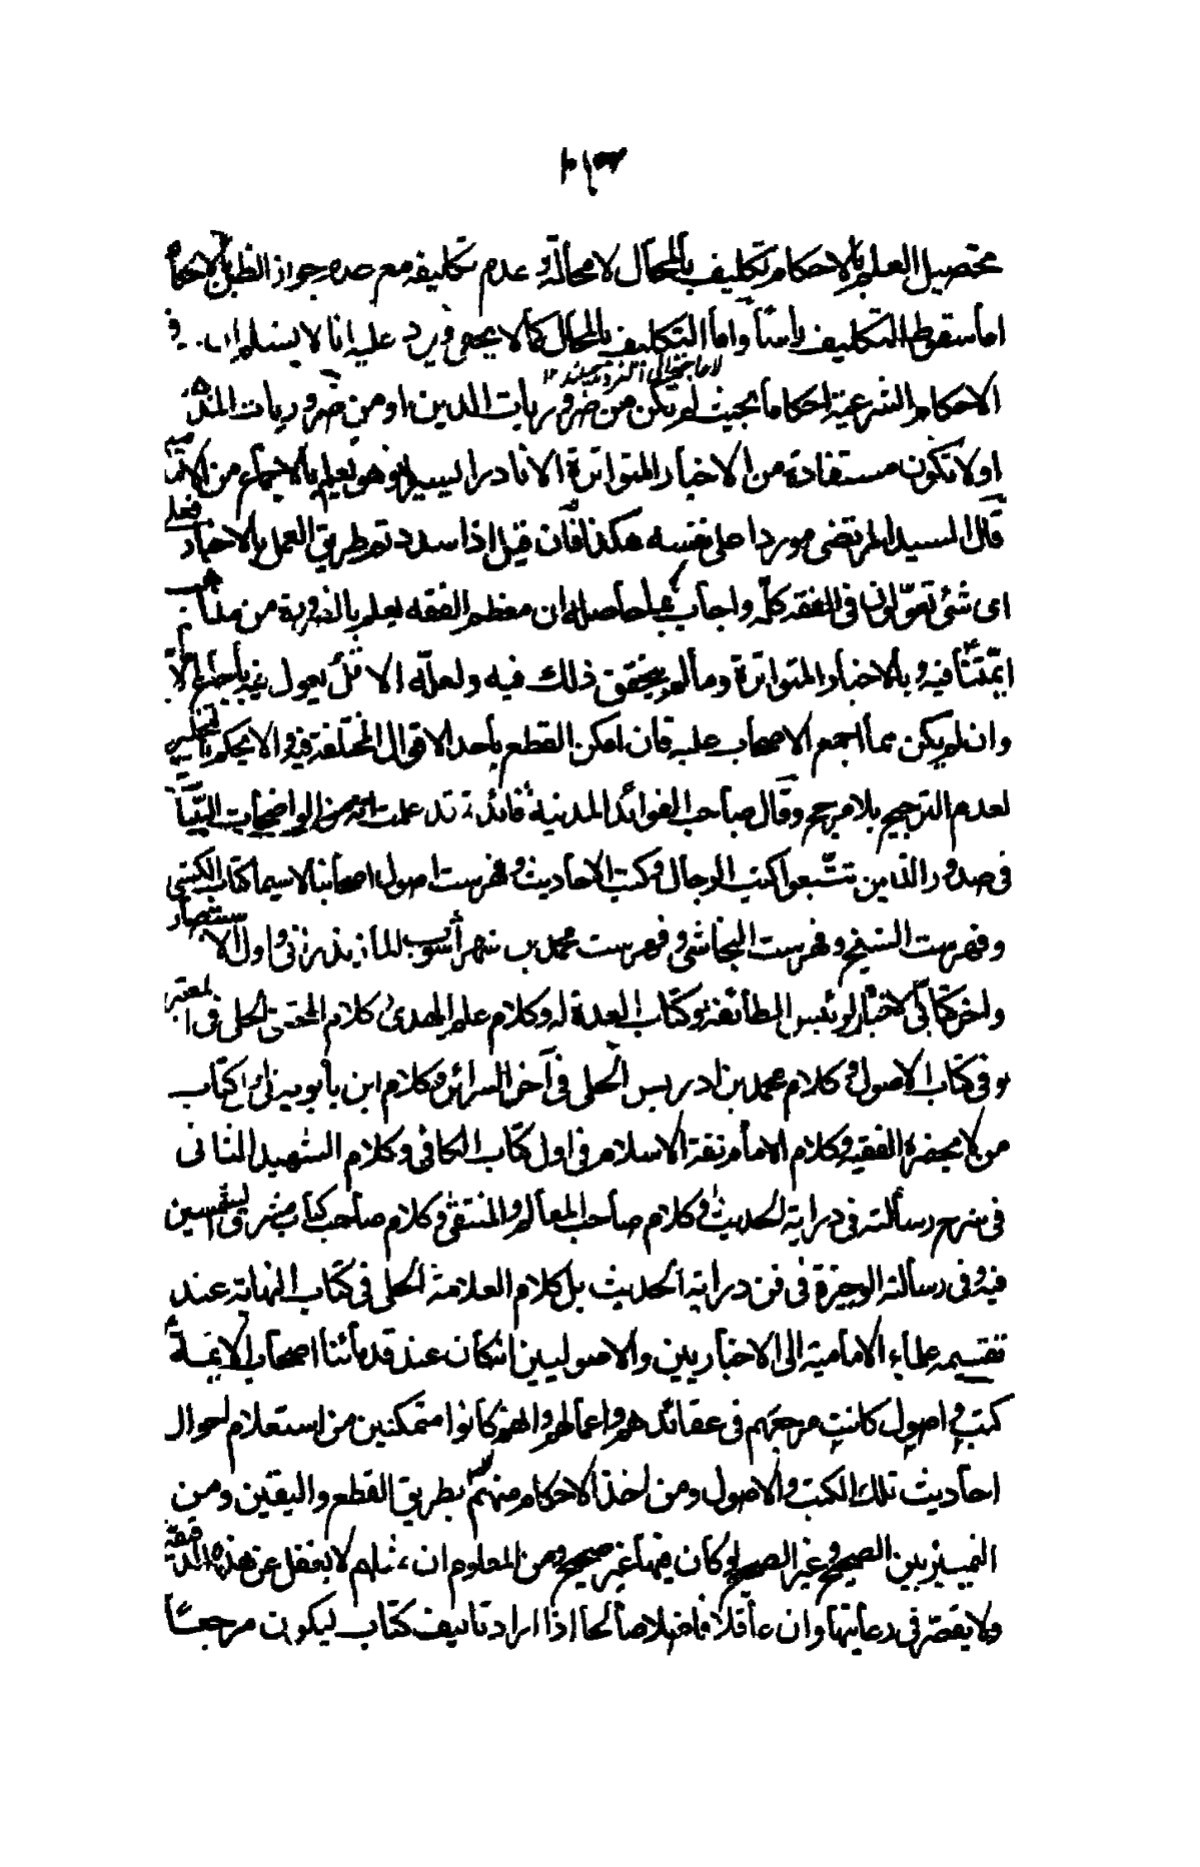 تحصيل العلم بالاحكام تكليف بالمحال لا محالة و عدم تكليفه مع عدم جواز الظن بالاحكام
اما سقوط التكليف راسا واما التكليف بالمحال كما لا يخفى ويرد عليه انا لا نسلم ان في
الاحكام الشرعية احكاما بحيث لم تكن من ضروريات الدين او من ضروريات المذهب
او لا تكون مستفادة من الاخبار المتواترة الا نادرا ليسيرا وهو نعلم بالاجماع من الامامية
قال السيد المرتضى موردا على نفسه هكذا فان قيل اذا سددتم طريق العمل بالاخبار فعلى
اى شئ تعوّلون فى الفقه كلّه واجاب بما حاصله ان معظم الفقه يعلم بالضرورة من مذاهب
ائمّتنا فيه و بالاخبار المتواترة وما لم يتحقق ذلك فيه ولعلّه الاقل يعول فيه باجماع الامامية
وان لم يكن مما اجمع الاصحاب عليه فان امكن القطع باحد الاقوال المختلفة فيه والا يحكم بالتخيير
لعدم الترجيح بلا مرجح وقال صاحب الفوائد المدنية فائدة قد علمت انه من الواضحات البيّنات
فى صدور الذين تتبّعوا كتب الرجال وكتب الاحاديث وفهرست اصول اصحابنا لا سيما كتاب الكشى
وفهرست الشيخ وفهرست النجاشى وفهرست محمد بن شهر آشوب المازندرانى واول الاستبصار
واخر كتابى الاخبار لرئيس الطائفة وكتاب العدة له وكلام علم الهدى وكلام المحقق الحلى فى المعتبر
وفى كتاب الاصول و كلام محمد بن ادريس الحلى فى آخر السرائر وكلام ابن بابويه فى اول كتاب
من لا يحضره الفقيه وكلام الامام ثقة الاسلام فى اول كتاب الكافى وكلام الشهيد الثانى
فى شرح رسالته فى دراية الحديث وكلام صاحب المعالم والمنتقى وكلام صاحب كتاب مشرق الشمسين
فيه وفى رسالته الوجيزة فى فن دراية الحديث بل كلام العلامة الحلى فى كتاب النهاية عند
تقسيمه علماء الامامية الى الاخباريين والاصوليين انه كان عند قدمائنا اصحاب الائمة
كتب و اصول كانت مرجعهم فى عقائدهم واعمالهم وانهم كانوا متمكنين من استعلام احوال
احاديث تلك الكتب والاصول ومن اخذ الاحكام منهم بطريق القطع واليقين ومن
التمييز بين الصحيح وغير الصحيح لو كان فيها غير صحيح ومن المعلوم ان مثلهم لا يغفل عن هذه الدقيقة
ولا يقصّر فى رعايتها وان عاقلا فاضلا صالحا اذا اراد تاليف كتاب ليكون مرجعا